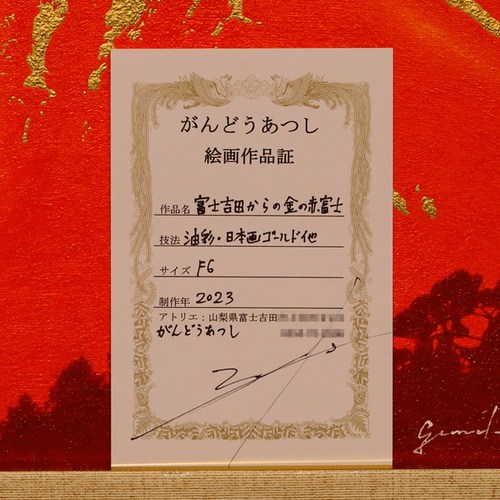 がんどうあつし
絵画作品証
作品名 富士吉田からの金の赤富士
技法 油彩・日本画ゴールド他
サイズ F6
制作年 2023
アトリエ：山梨県富士吉田
がんどうあつし